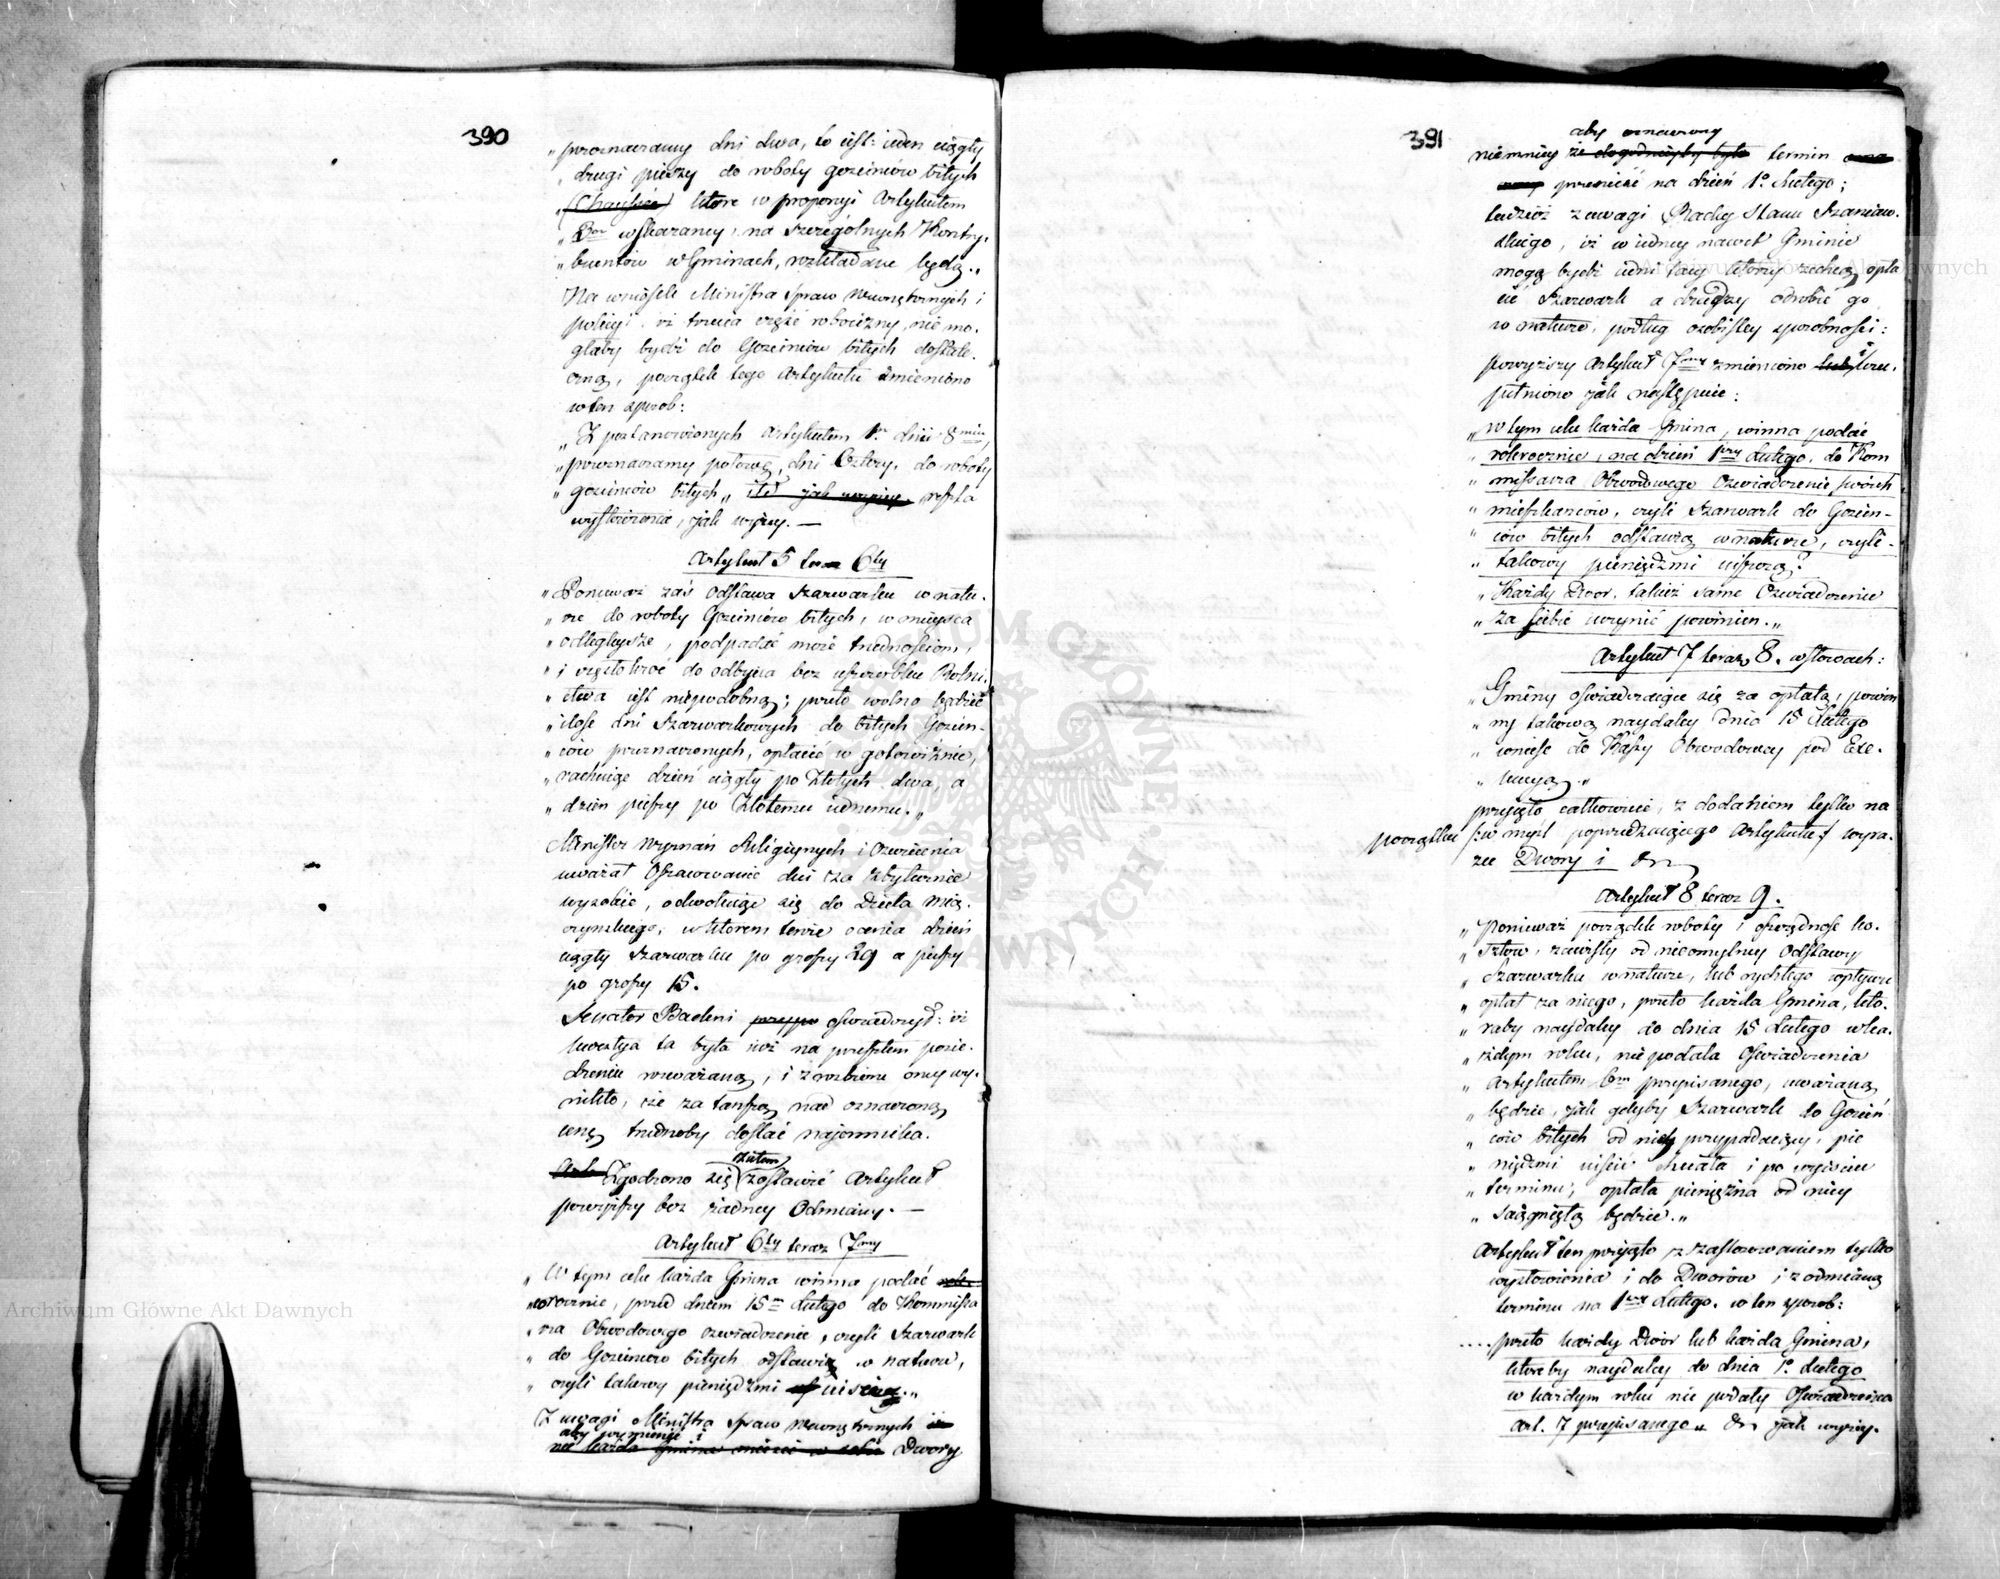 390
„przeznaczamy dni dwa, to iest: ieden ciągły
„drugi pieszy do roboty gościńców bitych
„(Chaussée) które w proporcyi Artykułem
„3em wskazaney, na szczególnych Kontry-
„buentów w Gminach, rozkładane będą.„
Na wniosek Ministra Spraw Wewnętrznych i
policyi, iż trzecia część robocizny, nie mo-
głaby bydź do Gościńców bitych dostate-
czną, początek tego Artykułu zmieniono
w ten sposób:
„Z postanowionych Artykułem 1m dni 8miu,
„przeznaczamy połowę, dni Cztery, do roboty
„gościńców bitych„ itd jak wyżey. reszta
wysłowienia, jak wyżey. —
Artykuł 5 teraz 6ty
„Ponieważ zaś odstawa Szarwarku w natu-
„rze do roboty Gościńców bitych, w mieysca
„odlegleysze, podpadać może trudnościom,
„i częstokroć do odbycia bez uszczerbku Rolni-
„ctwa iest niepodobną; przeto wolno będzie
„ilość dni Szarwarkowych do bitych Gościń-
„ców przeznaczonych, opłacić w gotowiźnie,
„rachuiąc dzień ciągły po Złotych dwa, a
„dzień pieszy po Złotemu iednemu.„
Minister Wyznań Religiynych i Oświecenia
uważał Oszacowanie dni za zbytecznie
wysokie, odwołuiąc się do Dzieła Mię-
czyńskiego, w którem tenże ocenia dzień
ciągły Szarwarku po groszy 29 a pieszy
po groszy 15.
Senator Badeni oświadczył: iż
kwestya ta była iuż na przeszłem posie-
dzeniu rozważaną, i z rozbioru oney wy-
nikło, że za tańszą nad oznaczoną
cenę trudnoby dostać najemnika.
zatem
Art. Zgodzono się zostawić Artykuł
powyższy bez żadney Odmiany. —
Artykuł 6ty teraz 7my
„W tym celu każda Gmina winna podać
„corocznie, przed dniem 15m Lutego do Kommissa-
„rza Obwodowego oświadczenie, czyli Szarwark
„do Gościńców bitych odstawią w naturze,
„czyli takowy pieniędzmi uiszczą.„
Z uwagi Ministra Spraw Wewnętrznych iż
aby wymienić i
nie każda Gmina mieści w sobie Dwory
391
aby oznaczony
niemniey że dogodnieyby było termin
przenieść na dzień 1o Lutego;
tudzież z uwagi Radcy Stanu Szaniaw-
skiego, iż w iedney nawet Gminie
mogą bydź iedni tacy którzy zechcą opła-
cić Szarwark a drudzy odrobić go
w naturze, podług osobistey sposobności:
powyższy Artykuł 7my zmieniono lub i uzu-
pełniono jak następuie:
„W tym celu każda Gmina, winna podać
„rokrocznie, na dzień 1wszy Lutego, do Kom
„missarza Obwodowego Oświadczenie swóich
„mieszkańców, czyli Szarwark do Gościń-
„ców bitych odstawią w naturze, czyli
„takowy pieniędzmi uiszczą?
„Każdy Dwór, takież same Oświadczenie
„za siebie uczynić powinien.„
Artykuł 7 teraz 8. w słowach:
„Gminy oświadczaiące się za opłatą, powin
„ny takową naydaley dnia 15 Lutego
„wnieść do Kassy Obwodowey pod Exe-
„kucyą.„
przyjęto całkowicie, z dodaniem tylko na
początku /:w myśl poprzedzaiącego Artykułu:/ wyra-
zu Dwory i
Artykuł 8 teraz 9.
„Ponieważ porządek roboty i oszczędność ko-
„sztów, zawisły od nieomylney Odstawy
„Szarwarku w naturze, lub rychłego wpływu
„opłat za niego, przeto każda Gmina, któ-
„raby naydaley do dnia 15 Lutego w ka-
„żdym roku, nie podała Oświadczenia
„Artykułem 6m przepisanego, uważaną
„będzie, jak gdyby Szarwark do Gościń
„ców bitych od niey przypadaiący, pie
„niędzmi uiścić chciała i po wyiściu
„terminu, opłata pieniężna od niey
„ściągniętą będzie.„
Artykuł ten przyjęto z zastosowaniem tylko
wysłowienia i do Dworów i z odmianą
terminu na 1wszy Lutego. w ten sposób:
....przeto każdy Dwór lub każda Gmina,
któreby naydaley do dnia 1o Lutego
w każdym roku nie podały Oświadczenia
Art. 7 przepisanego„ jak wyżey.
Archiwum Główne Akt Dawnych
Archiwum Główne Akt Dawnych
ARCHIWUM GŁÓWNE AKT DAWNYCH